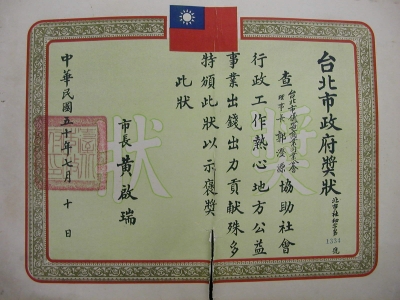 台北市政府獎狀
北市社初字第1334號
查
理事長 郭澄源 協助社會
行政工作熱心地方公益
事業出錢出力貢獻殊多
特頒此狀以示褒獎
此狀
市長 黃啟瑞
中華民國五十年七月十日
獎狀